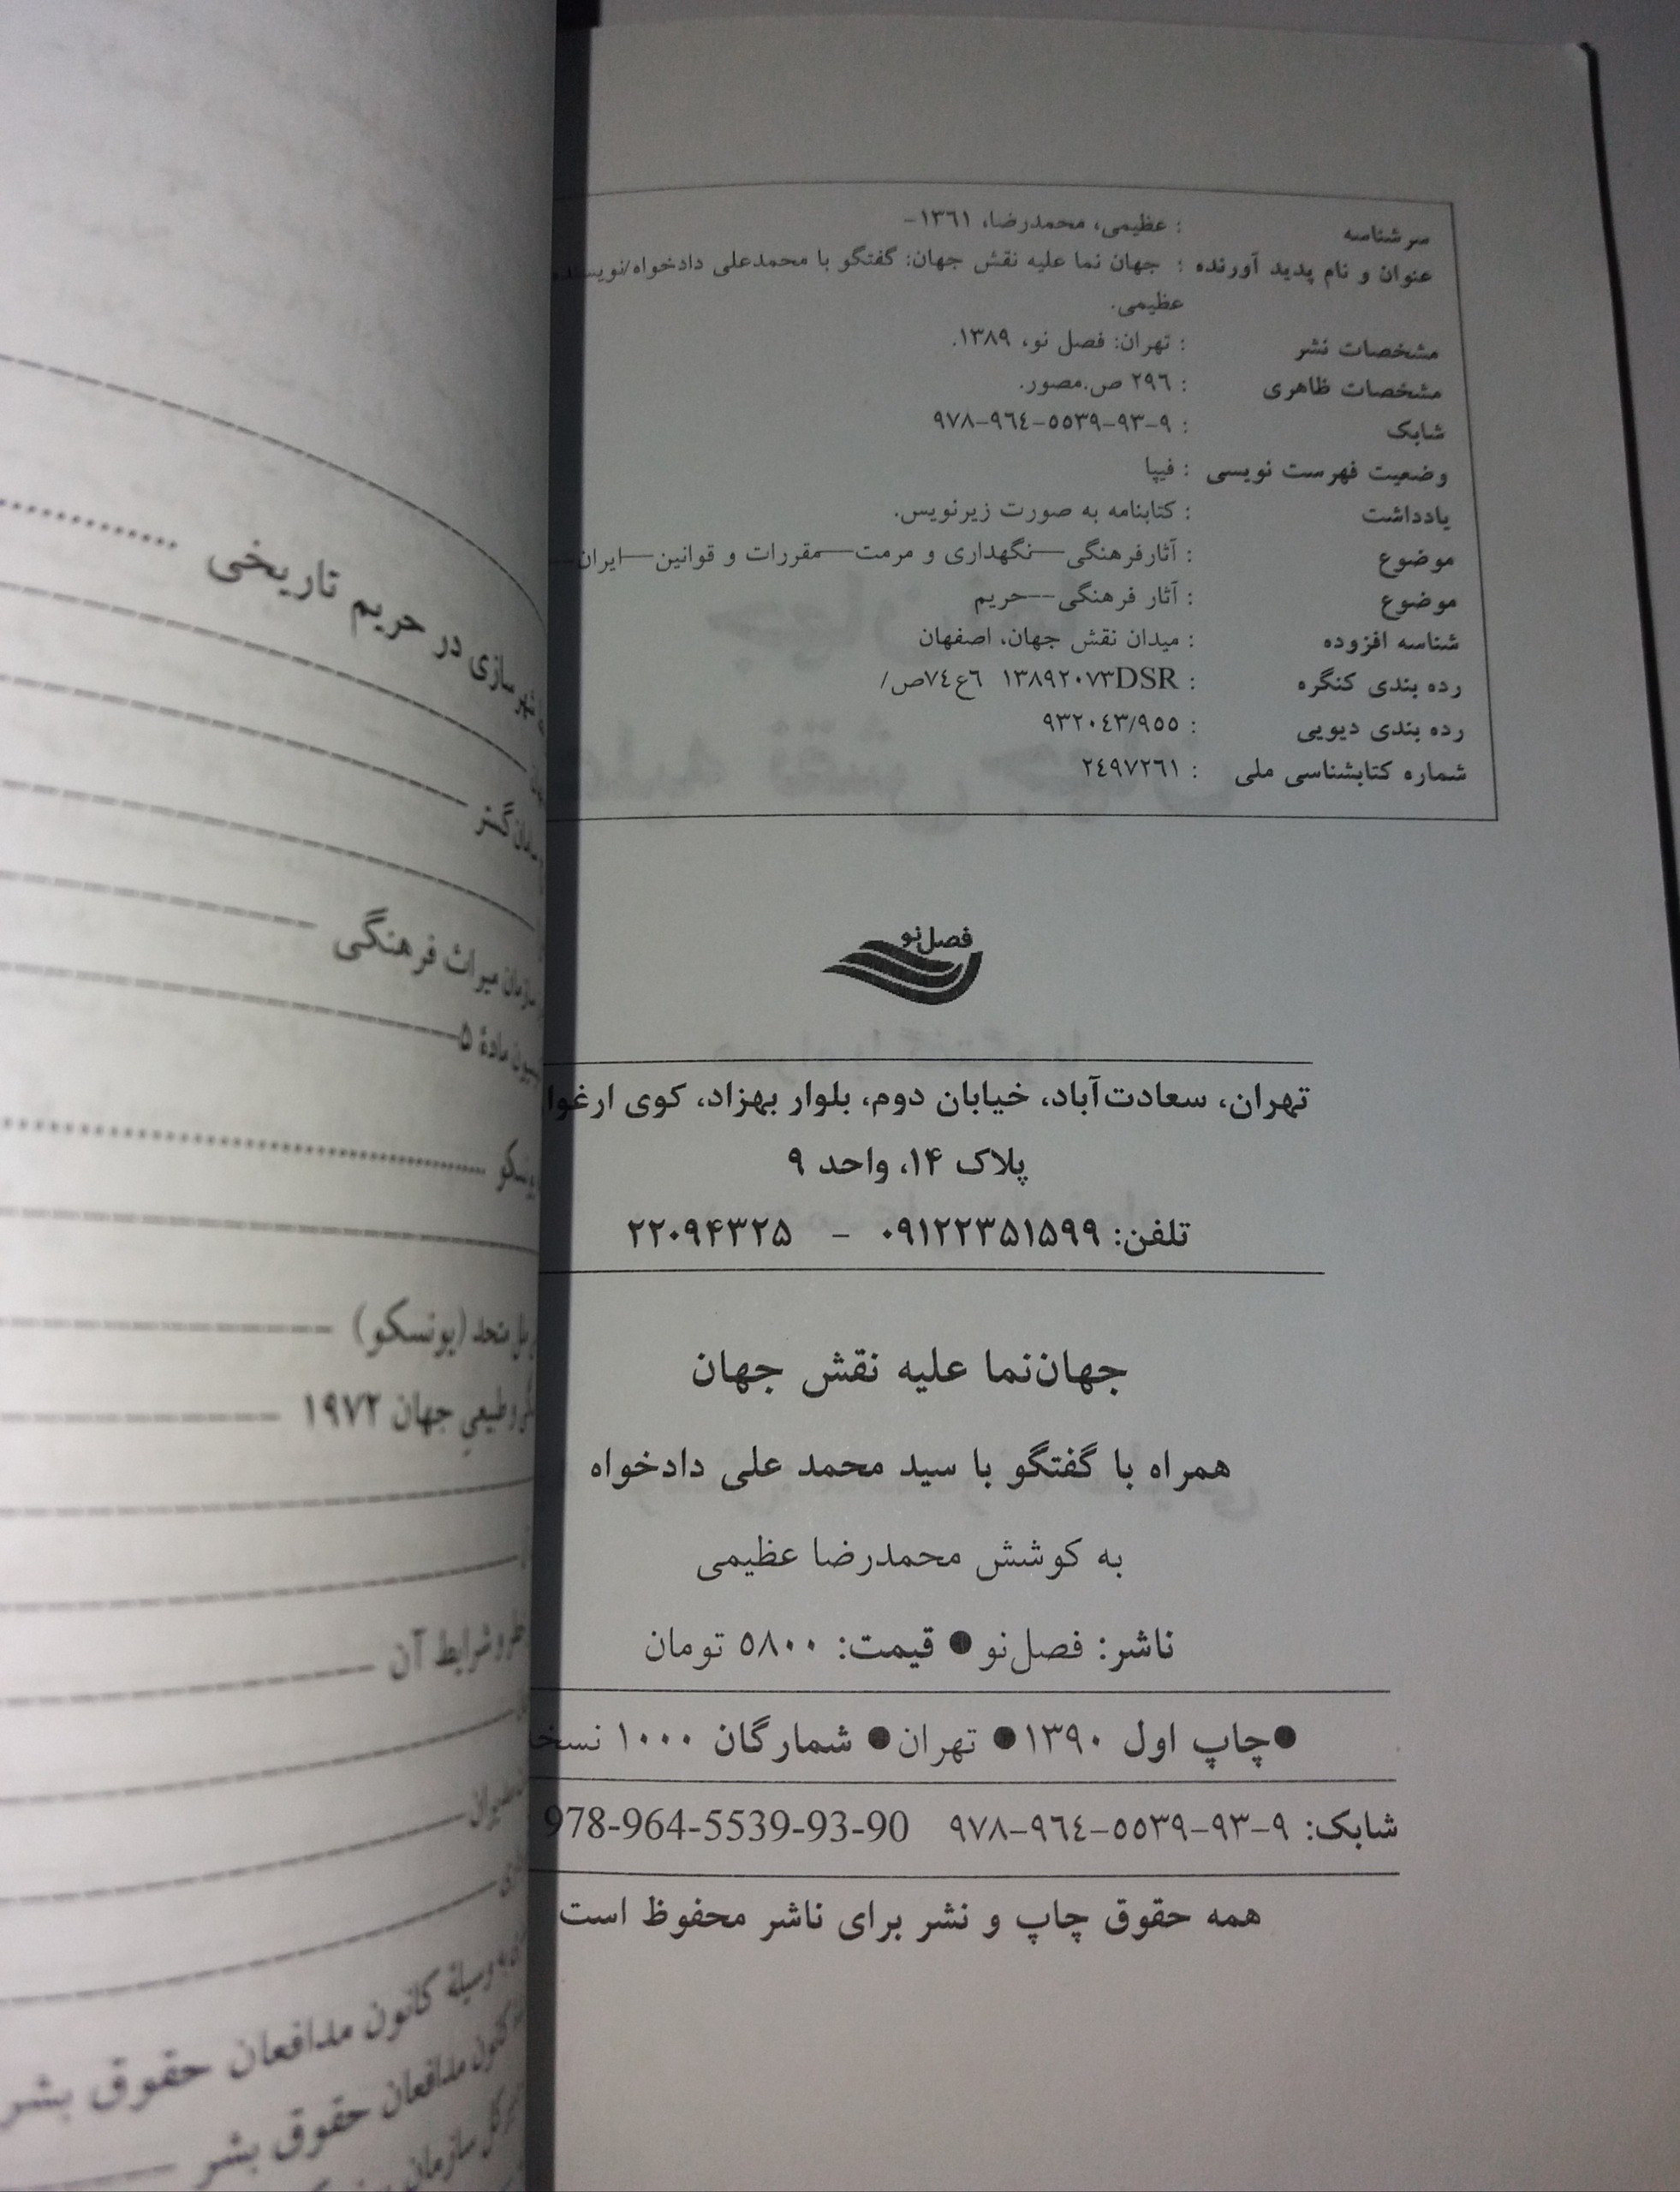 سرشناسه : عظیمی، محمدرضا، ۱۳۶۱-
عنوان و نام پدید آورنده : جهان نما علیه نقش جهان: گفتگو با محمدعلی دادخواه/نویسنده
عظیمی.
مشخصات نشر : تهران: فصل نو، ۱۳۸۹.
مشخصات ظاهری : ۲۹۶ ص.مصور.
شابک : ۹۷۸-۹۶٤-۵۵۳۹-۹۳-۹
وضعیت فهرست نویسی : فیپا
یادداشت : کتابنامه به صورت زیرنویس.
موضوع : آثارفرهنگی—نگهداری و مرمت—مقررات و قوانین—ایران—
موضوع : آثار فرهنگی--حریم
شناسه افزوده : میدان نقش جهان، اصفهان
رده بندی کنگره : ۱۳۸۹۲۰۷۳DSR ٦ع٧٤ص/
رده بندی دیویی : ۹۳۲۰٤۳/۹۵۵
شماره کتابشناسی ملی : ۲٤۹۷۲٦۱
فصل نو
تهران، سعادت‌آباد، خیابان دوم، بلوار بهزاد، کوی ارغوا
پلاک ۱۴، واحد ۹
تلفن: ۰۹۱۲۲۳۵۱۵۹۹ - ۲۲۰۹۴۳۲۵
جهان‌نما علیه نقش جهان
همراه با گفتگو با سید محمد علی دادخواه
به کوشش محمدرضا عظیمی
ناشر: فصل‌نو ● قیمت: ۵۸۰۰ تومان
●چاپ اول ۱۳۹۰● تهران● شمارگان ۱۰۰۰ نسخه
شابک: ۹-۹۳-۵۵۳۹-۹٦٤-۹۷۸ 978-964-5539-93-90
همه حقوق چاپ و نشر برای ناشر محفوظ است
شهرسازی در حریم تاریخی
سامان‌گستر
سازمان میراث فرهنگی
مادهٔ ۵
یونسکو
ملل متحد (یونسکو)
و طبیعیِ جهان ۱۹۷۲
و شرایط آن
مدیران
وسیلهٔ کانون مدافعان حقوق بشر
کانون مدافعان حقوق بشر
سازمان